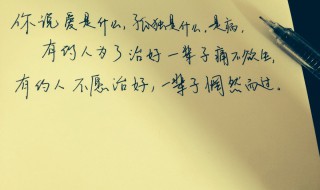 你说爱是什么,孤独是什么,是病,
有的人为了治好一辈子痛不欲生,
有的人不愿治好,一辈子惘然而过.